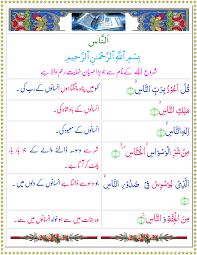 النَّاس
بِسْمِ اللّٰهِ الرَّحْمٰنِ الرَّحِيْمِ
شروع اللہ کے نام سے جو بڑا مہربان نہایت رحم والا ہے
قُلْ اَعُوْذُ بِرَبِّ النَّاسِ
کہو میں پناہ
انسانوں کے رب کی۔
مَلِكِ النَّاسِ
انسانوں کے بادشاہ کی۔
اِلٰهِ النَّاسِ
انسانوں کے معبود کی۔
مِنْ شَرِّ الْوَسْوَاسِ الْخَنَّاسِ
شر سے وسوسہ ڈالنے والے کے جو بار بار
پلٹ کر آتا ہے۔
الَّذِیْ یُوَسْوِسُ فِیْ صُدُوْرِ النَّاسِ
جو وسوسے ڈالتا ہے انسانوں کے دلوں میں۔
مِنَ الْجِنَّةِ وَ النَّاسِ
وہ جنات میں سے ہو خواہ انسانوں میں سے۔